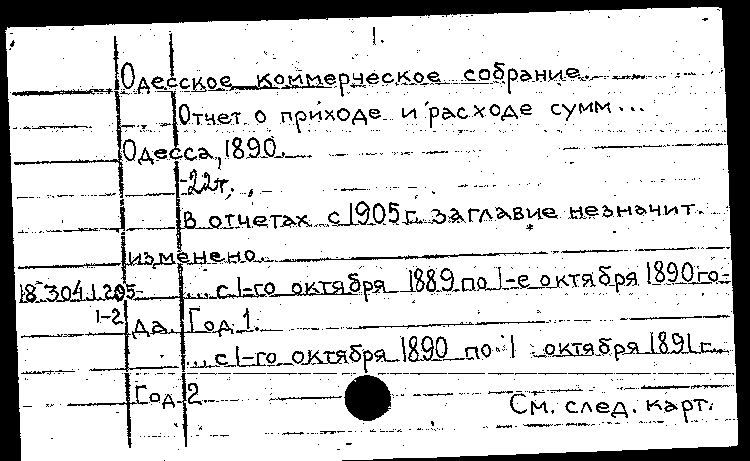 1.
Одесское коммерческое собрание.
Отчет о приходе и расходе сумм...
Одесса, 1890.
-22т.
В отчетах с 1905 г. заглавие незначит.
изменено.
18.304.1.205 ... с 1-го октября 1889 по 1-е октября 1890 го-
1-2 да. Год 1.
... с 1-го октября 1890 по 1 октября 1891 г.
Год 2
См. след. карт.